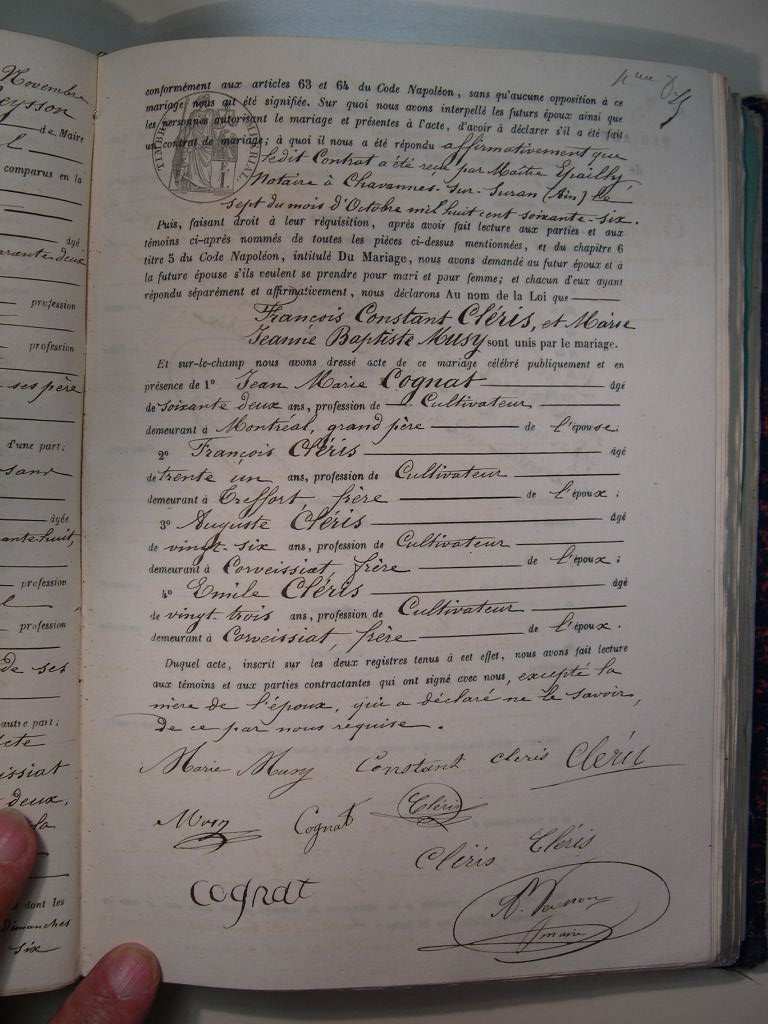 Novembre
eysson
de Maire
l
comparus en la
âgé
arante deux
profession
profession
ses père
d'une part;
sand
âgée
ante huit,
profession
l
profession
de ses
autre part;
cte
issiat
deux,
la
dont les
Dimanches
six
TIMBRE IMPÉRIAL
conformément aux articles 63 et 64 du Code Napoléon, sans qu'aucune opposition à ce
mariage nous ait été signifiée. Sur quoi nous avons interpellé les futurs époux ainsi que
les personnes autorisant le mariage et présentes à l'acte, d'avoir à déclarer s'il a été fait
un contrat de mariage; à quoi il nous a été répondu affirmativement que
ledit Contrat a été reçu par Maître Epailly
Notaire à Chavannes-sur-Suran (Ain) le
sept du mois d'Octobre mil huit cent soixante-six.
Puis, faisant droit à leur réquisition, après avoir fait lecture aux parties et aux
témoins ci-après nommés de toutes les pièces ci-dessus mentionnées, et du chapitre 6
titre 5 du Code Napoléon, intitulé Du Mariage, nous avons demandé au futur époux et à
la future épouse s'ils veulent se prendre pour mari et pour femme; et chacun d'eux ayant
répondu séparément et affirmativement, nous déclarons Au nom de la Loi que
François Constant Cléris, et Marie
Jeanne Baptiste Musy sont unis par le mariage.
Et sur-le-champ nous avons dressé acte de ce mariage célébré publiquement et en
présence de 1º Jean Marie Cognat âgé
de soixante deux ans, profession de Cultivateur
demeurant à Montréal, grand père de l'épouse;
2º François Cléris âgé
de trente un ans, profession de Cultivateur
demeurant à Treffort, frère de l'époux;
3º Auguste Cléris âgé
de vingt-six ans, profession de Cultivateur
demeurant à Corveissiat, frère de l'époux;
4º Emile Cléris âgé
de vingt-trois ans, profession de Cultivateur
demeurant à Corveissiat, frère de l'époux.
Duquel acte, inscrit sur les deux registres tenus à cet effet, nous avons fait lecture
aux témoins et aux parties contractantes qui ont signé avec nous, excepté la
mère de l'époux, qui a déclaré ne le savoir,
de ce par nous requise.
Marie Musy Constant cleris Cléris
Musy Cognat Cléris
Cléris Cléris
cognat
maire